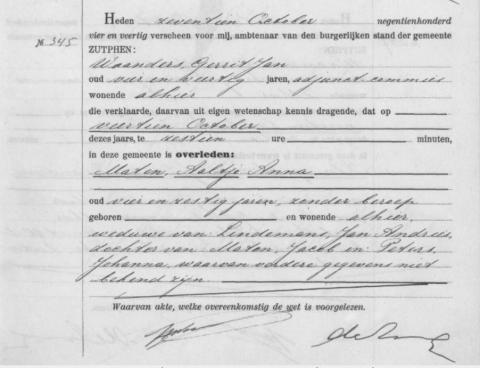 Heden zeventien October negentienhonderd
№ 345
vier en veertig verscheen voor mij, ambtenaar van den burgerlijken stand der gemeente
ZUTPHEN:
Waanders, Gerrit Jan
oud vier en veertig jaren, adjunct commies
wonende alhier
die verklaarde, daarvan uit eigen wetenschap kennis dragende, dat op
viertien October
dezes jaars, te zestien ure minuten,
in deze gemeente is overleden:
Maten, Aaltje Anna
oud vier en zestig jaren, zonder beroep
geboren en wonende alhier,
weduwe van Lindemans, Jan Andries,
dochter van Maten, Jacob en Peters,
Johanna, waarvan verdere gegevens niet
bekend zijn
Waarvan akte, welke overeenkomstig de wet is voorgelezen.